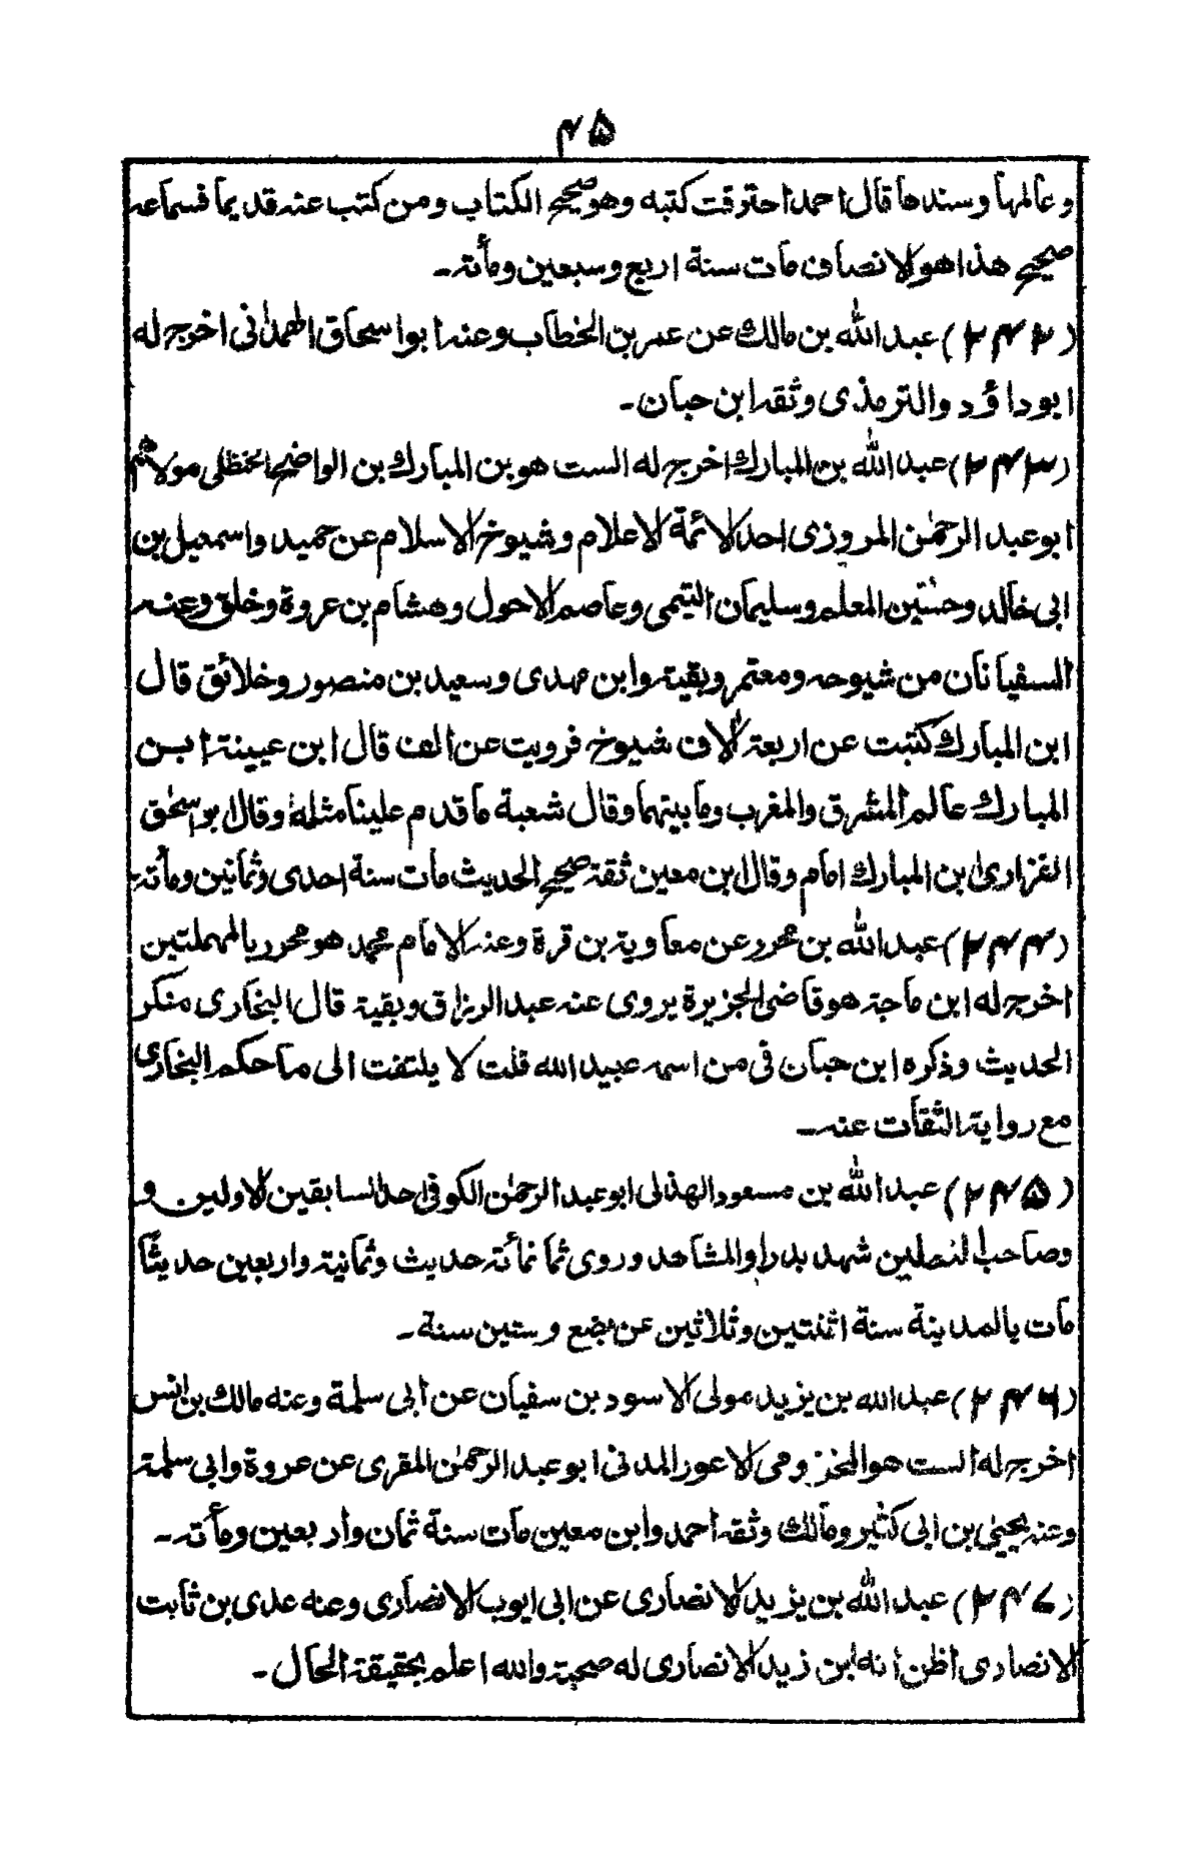 ۴۵
وعالمها وسندها قال احمد احترقت كتبه وهو صحيح الكتاب ومن كتب عنه قديما فسماعه
صحيح هذا هو الانصاف مات سنة اربع وسبعين ومأته۔
(۲۴۲) عبد الله بن مالك عن عمر بن الخطاب وعنه ابو اسحاق الهمدانى اخرجه له
ابو داؤد والترمذى وثقه ابن حبان۔
(۲۴۳) عبد الله بن المبارك اخرجه له الست هو بن المبارك بن الواضح الحنظلى مولاهم
ابو عبد الرحمٰن المروزى احد الائمة الاعلام وشيوخ الاسلام عن حميد واسمعيل بن
ابى خالد وحسين المعلم وسليمان التيمى وعاصم الاحول وهشام بن عروة وخلق وعنه
السفيانان من شيوحه ومعتمر وبقية وابن مهدى وسعيد بن منصور وخلائق قال
ابن المبارك كتبت عن اربعة الاف شيوخ فرويت عن الف قال ابن عيينة ابن
المبارك عالم المشرق والمغرب وما بينهما وقال شعبة ما قدم علينا مثله وقال ابو اسحٰق
الفزارى ابن المبارك امام وقال ابن معين ثقة صحيح الحديث مات سنة احدى وثمانين ومأته
(۲۴۴) عبد الله بن محرر عن معاوية بن قرة وعنه الامام محمد هو محرر بالمهملتين
اخرجه له ابن ماجة هو قاضى الجزيرة يروى عنه عبد الرزاق وبقية قال البخارى منكر
الحديث وذكره ابن حبان فى من اسمه عبيد الله قلت لا يلتفت الى ما حكم البخارى
مع رواية الثقات عنه۔
(۲۴۵) عبد الله بن مسعود الهذلى ابو عبد الرحمٰن الكوفى احد السابقين الاولين و
وصاحب النعلين شهد بدرا والمشاهد وروى ثمانمائة حديث وثمانية واربعين حديثًا
مات بالمدينة سنة اثنتين وثلاثين عن بضع وستين سنة۔
(۲۴۶) عبد الله بن يزيد مولى الاسود بن سفيان عن ابى سلمة وعنه مالك بن انس
اخرجه له الست هو المخزومى الاعور المدنى ابو عبد الرحمٰن المقرى عن عروة وابى سلمة
وعنه يحيىٰ بن ابى كثير ومالك وثقه احمد وابن معين مات سنة ثمان واربعين ومأته۔
(۲۴۷) عبد الله بن يزيد الانصارى عن ابى ايوب الانصارى وعنه عدى بن ثابت
الانصارى اظن انه ابن زيد الانصارى له صحبة والله اعلم بحقيقة الحال۔